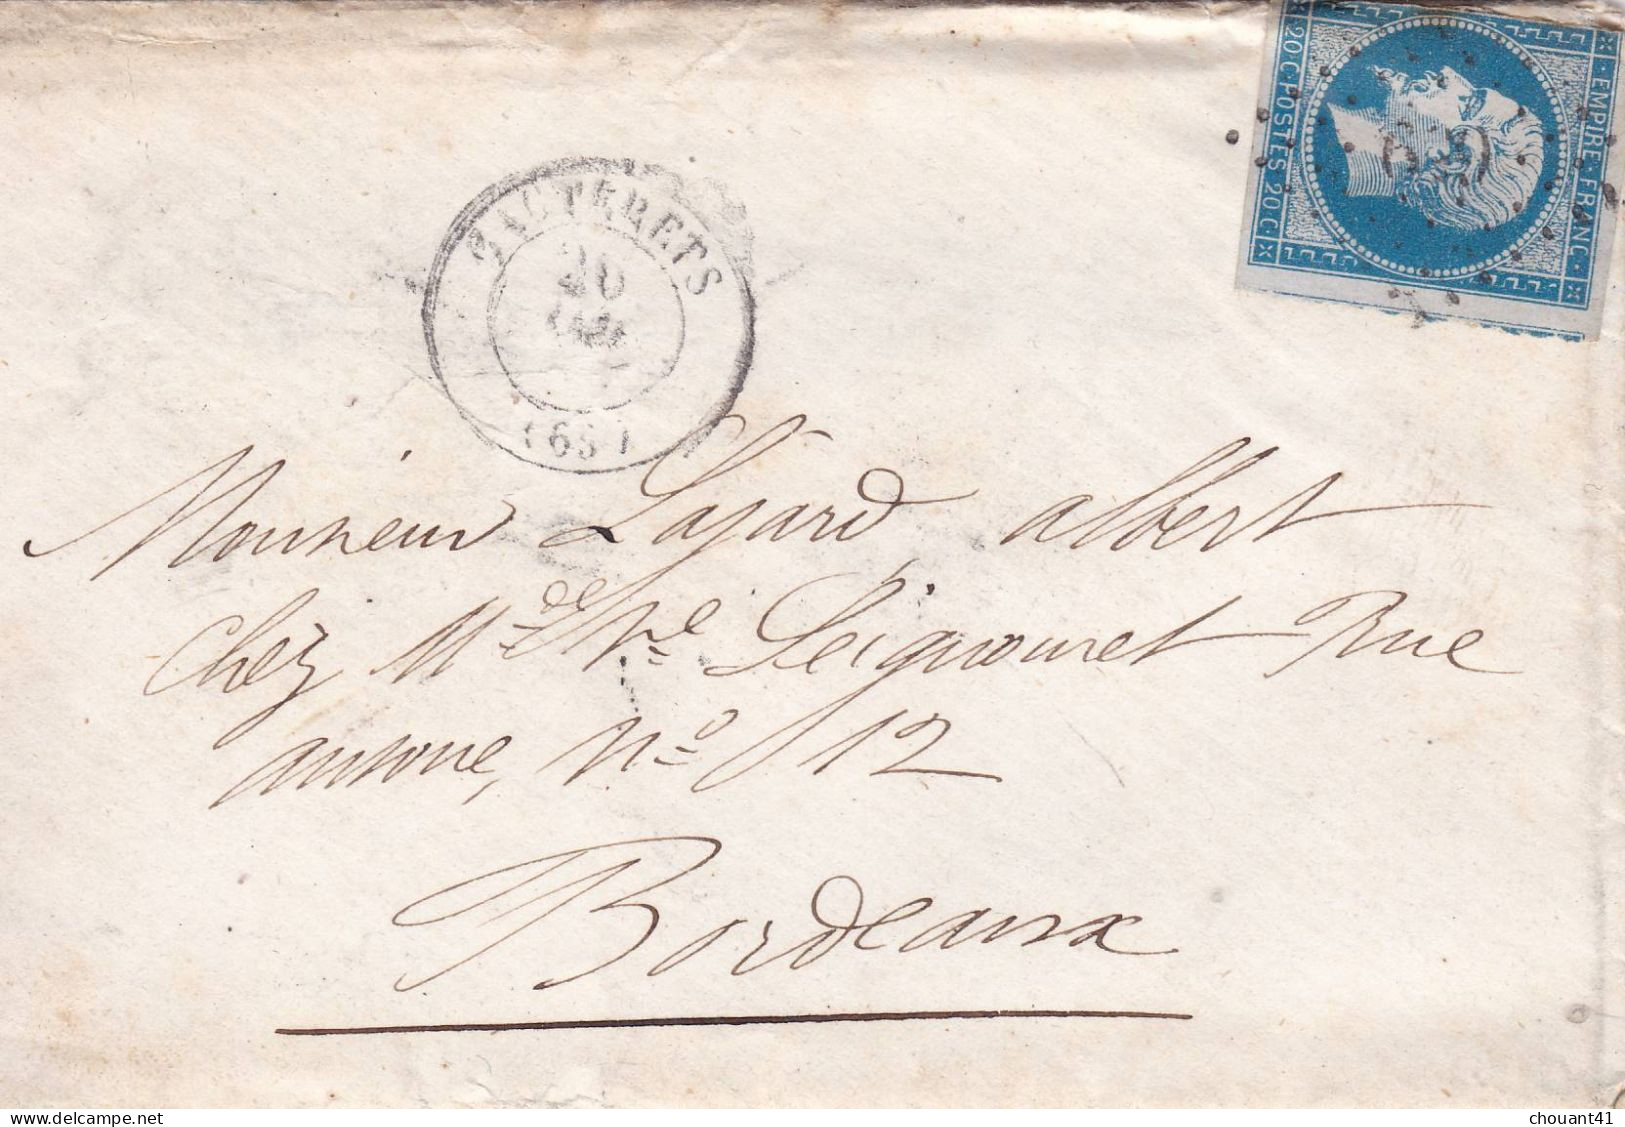 EMPIRE · FRANC ·
20 C · POSTES 20 C
CAUTERETS
20
(65)
Monsieur Lajard, albert
chez Mde Vve Seignouret Rue
ausone, No 12
Bordeaux
delcampe.net
chouant41